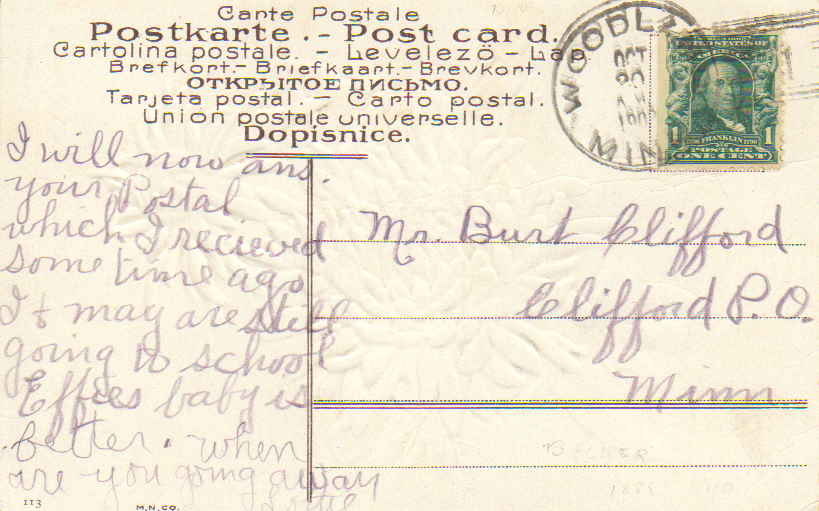 Carte Postale
Postkarte .- Post card.
Cartolina postale. - Levelezö - Lap
Brefkort.- Briefkaart.- Brevkort.
ОТКРЫТОЕ ПИСЬМО.
Tarjeta postal. - Carto postal.
Union postale universelle.
Dopisnice.
WOODL
OCT
20
MIN
UNITED STATES OF
AMERICA
1 FRANKLIN 1
POSTAGE
ONE CENT
I will now ans.
your Postal
which I recieved
some time ago
I & may are still
going to school
Effies baby is
better. when
are you going away
Mr. Burt Clifford
Clifford P.O.
Minn
BECKER
113
M.N.CO.